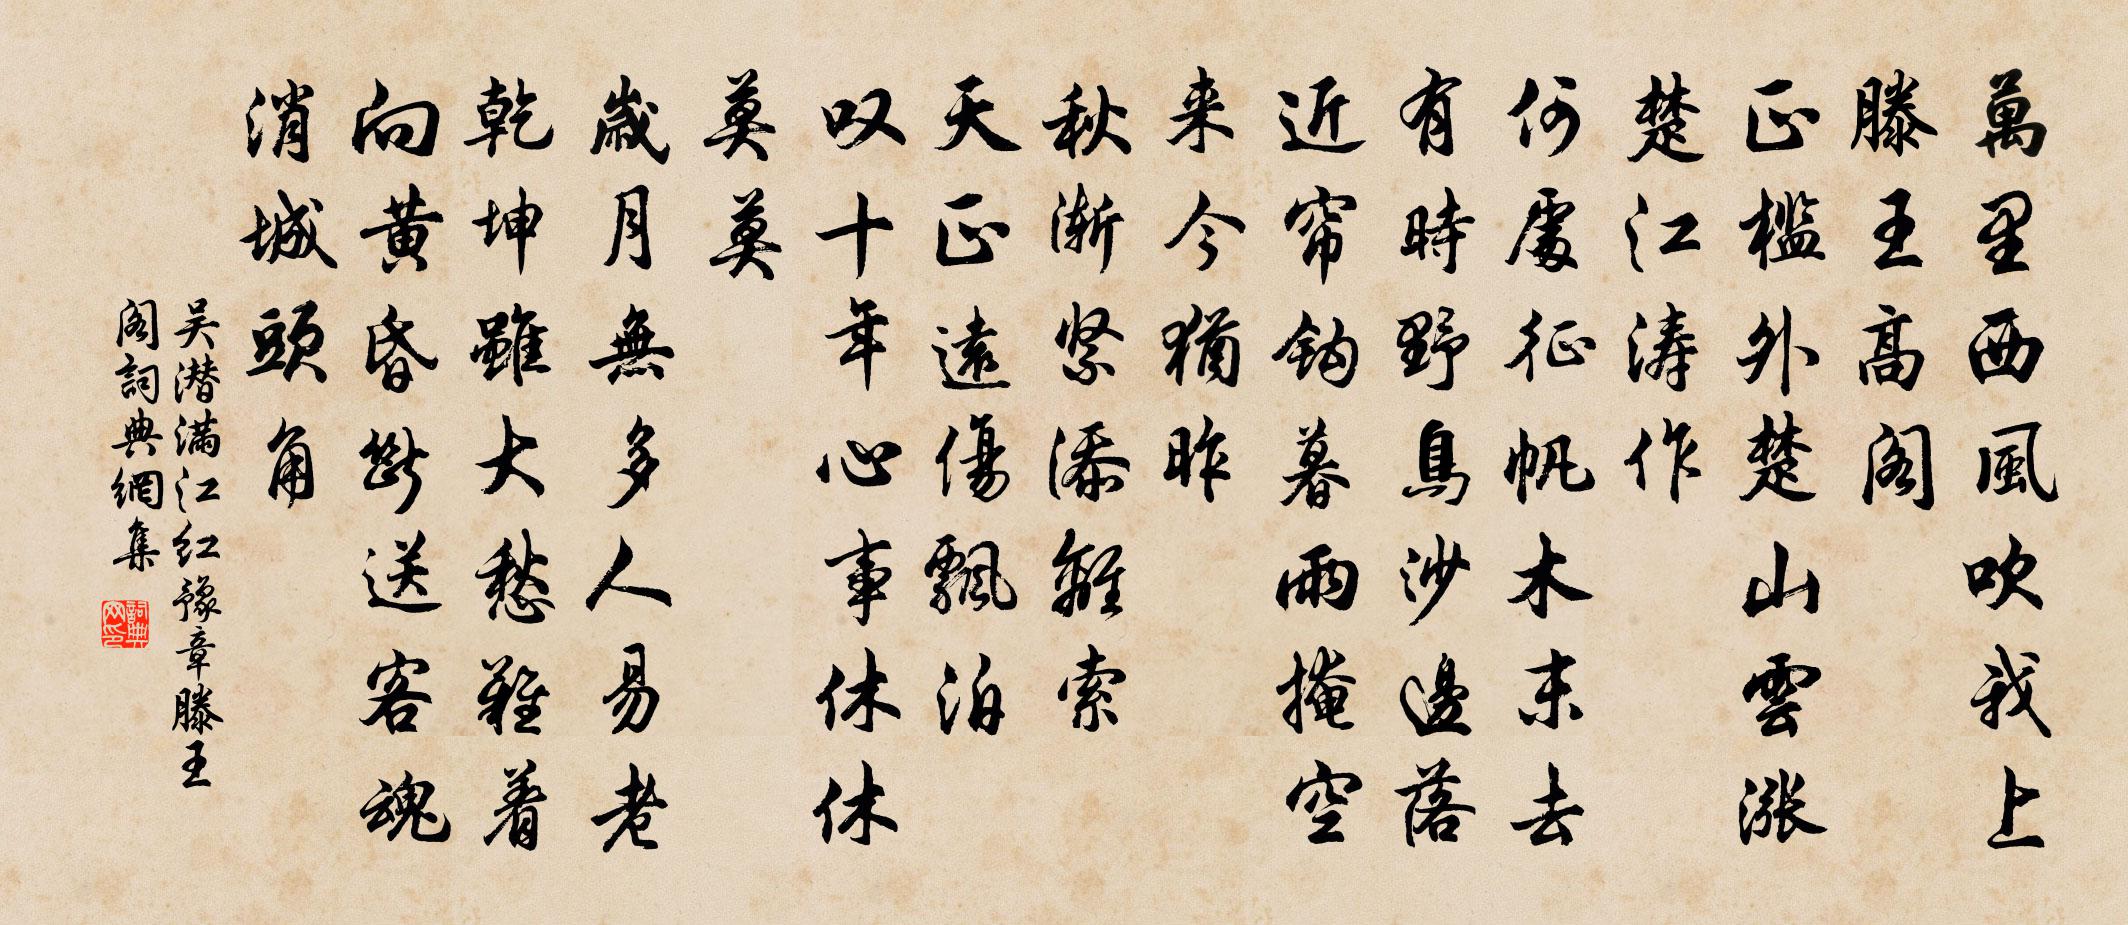 萬里西風吹我上
滕王高閣
正檻外楚山雲漲
楚江濤作
何處征帆木末去
有時野鳥沙邊落
近帘鉤暮雨掩空
来今猶昨
秋漸緊添離索
天正遠傷飄泊
叹十年心事休休
莫莫
歲月無多人易老
乾坤雖大愁難着
向黄昏斷送客魂
消城頭角
吴潜满江红豫章滕王
阁詞典網集
詞典
网印